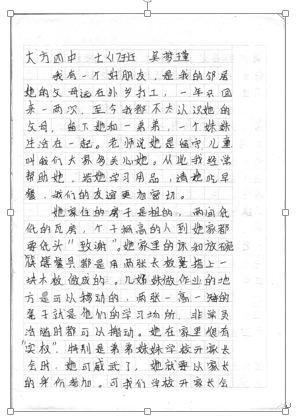 大方四中 七(2)班 吴梦瑾
我有一个好朋友，是我的邻居
她的父母远在外乡打工，一年只回
来一两次，至今我都不太认识她的
父母，留下她和一弟弟，一个妹妹
生活在一起。老师说她是留守儿童
叫我们大家多关心她。从此我经常
帮助她，给她学习用品，请她吃早
餐，我们的友谊更加密切。
她家住的房子是租的，两间低
低的瓦房，个子挺高的人到她家都
要低头"致谢"。她家里的床和放碗
筷 都是用两张长板凳搭上一
块木板做成的。几姊妹做作业的地
方是可以移动的，两张一高一矮的
凳子就是他们的学习场所，非常灵
活随时都可以搬动。她在家里很有
"实权"，特别是弟弟妹妹学校开家长
会时，她可威武了，她就要以家长
的身份参加。可我们学校开家长会